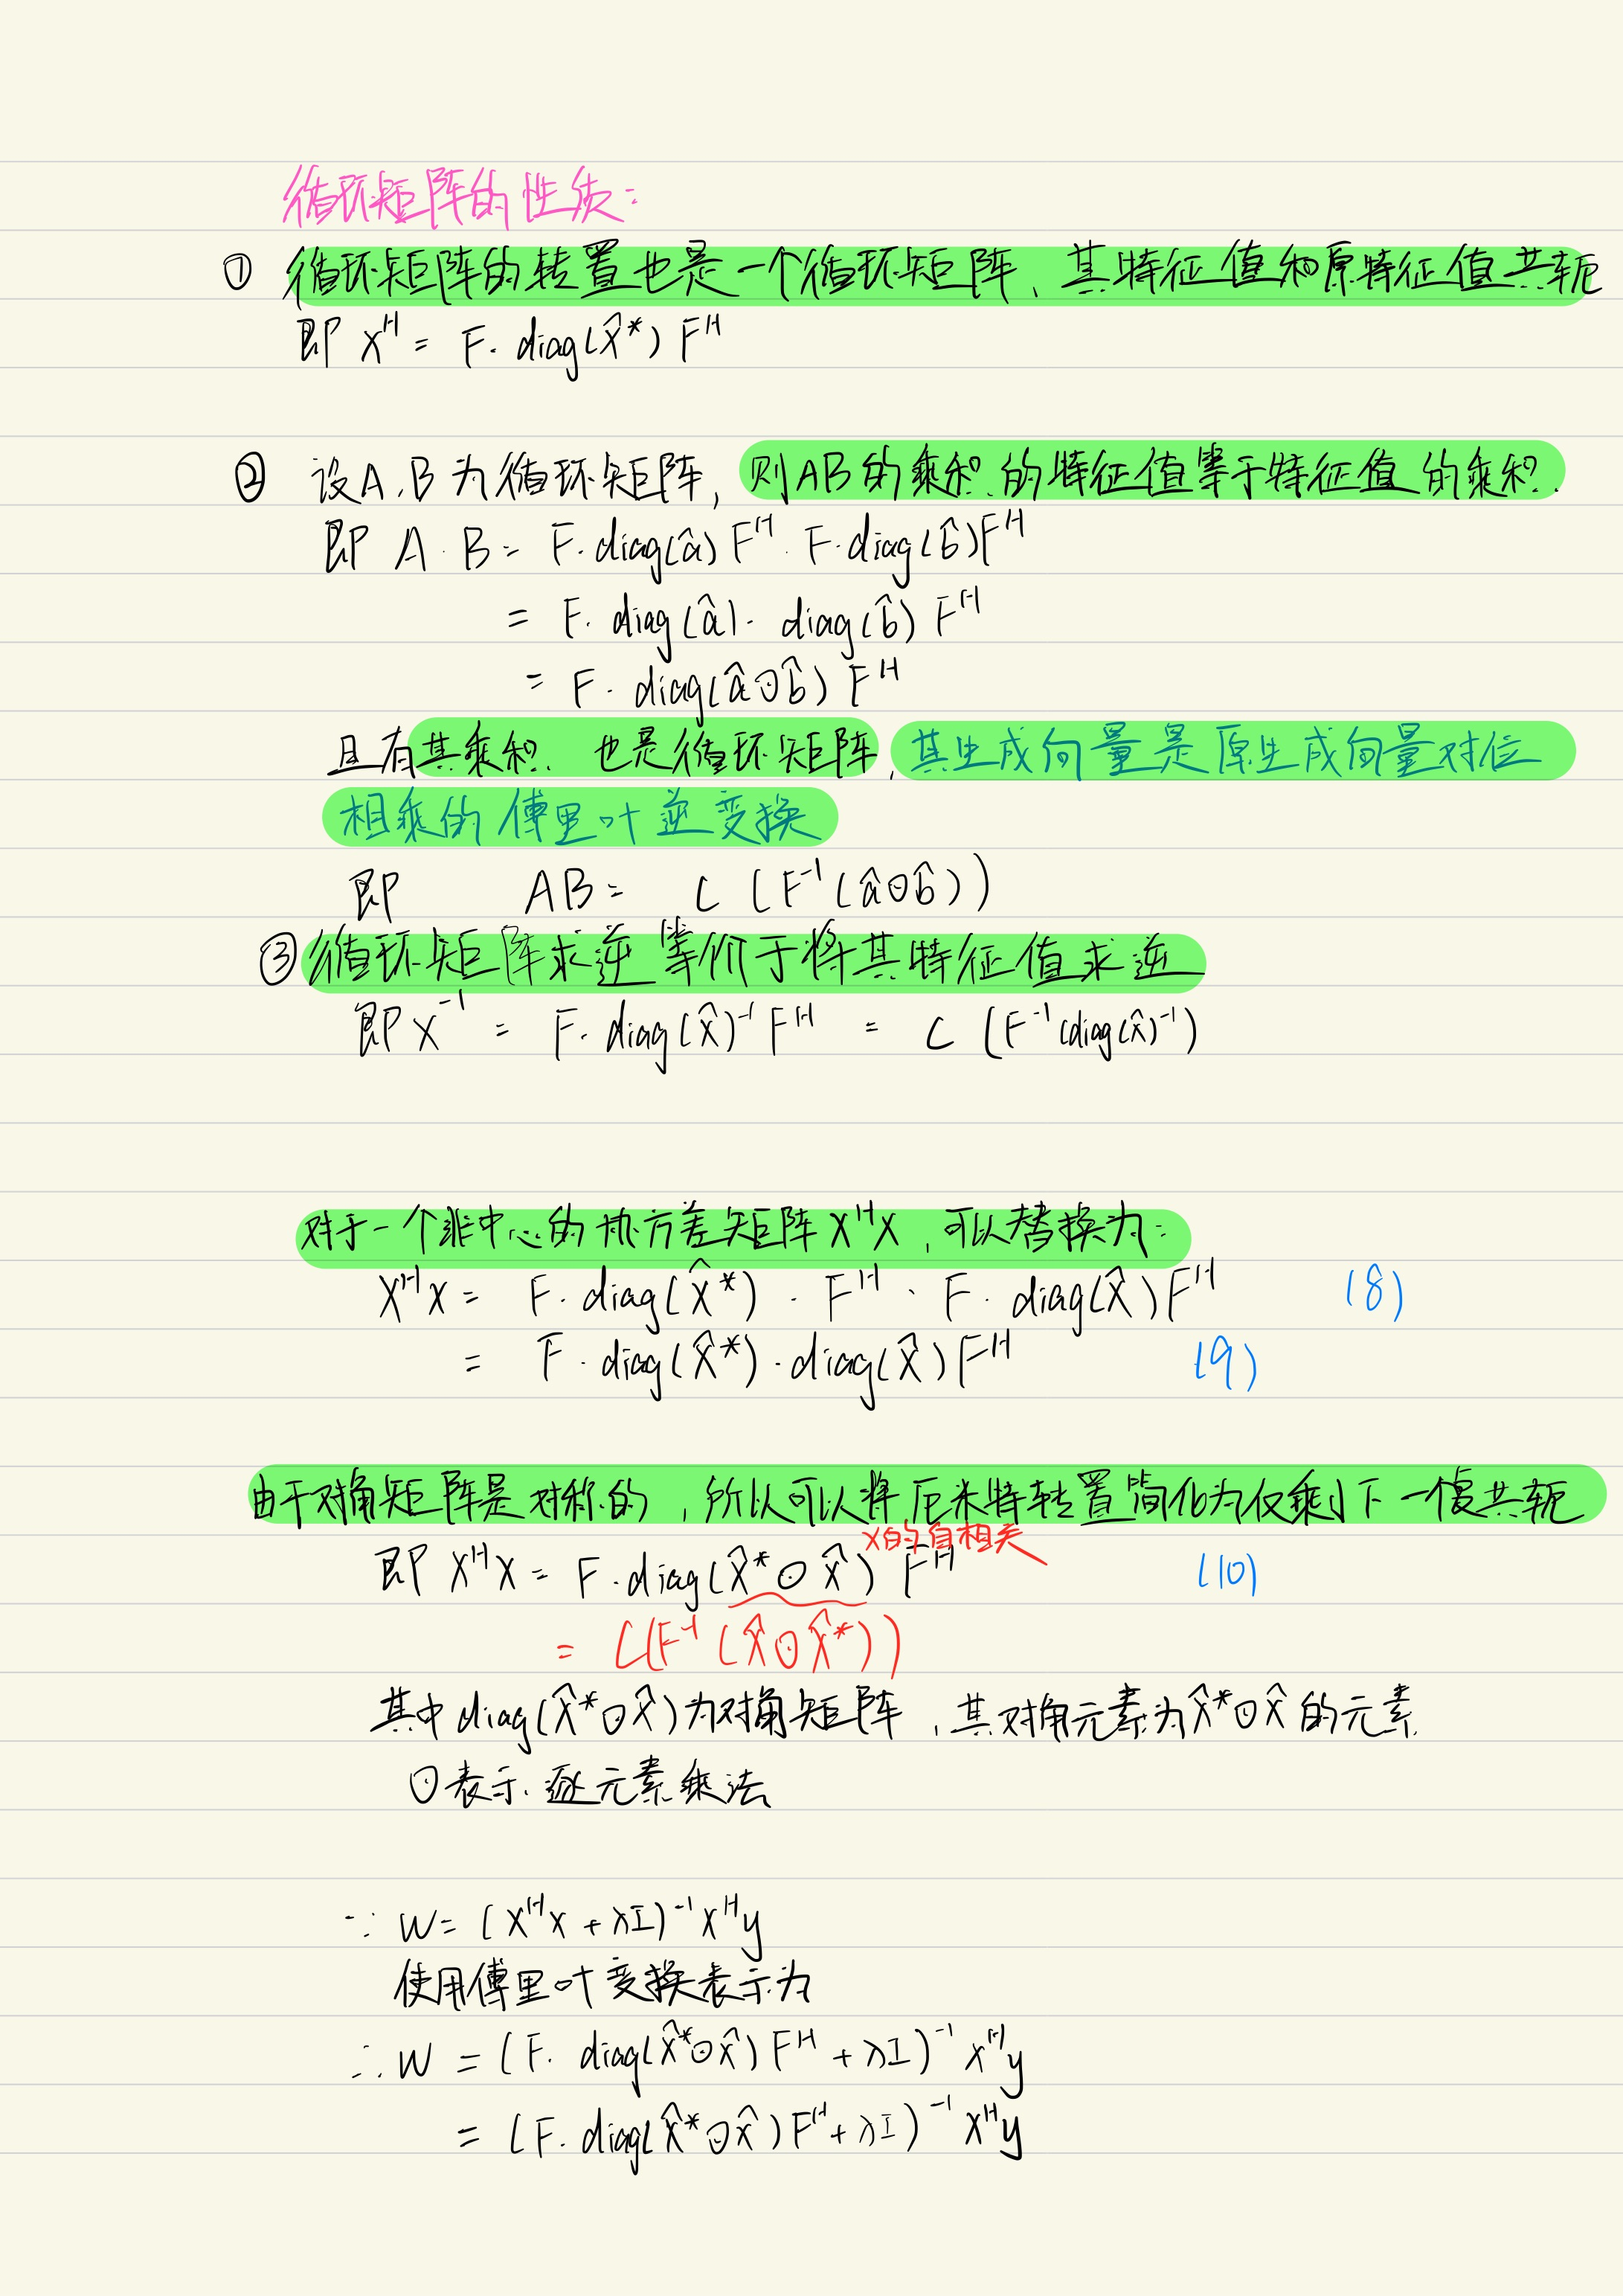 循环矩阵的性质:
① 循环矩阵的转置也是一个循环矩阵、其特征值和原特征值共轭
即 X^H = F·diag(x̂*) F^H
② 设A,B为循环矩阵,则AB的乘积的特征值等于特征值的乘积.
即 A·B = F·diag(â) F^H·F·diag(b̂)F^H
= F·diag(â)·diag(b̂) F^H
= F·diag(â⊙b̂) F^H
且有其乘积也是循环矩阵,其生成向量是原生成向量对位
相乘的傅里叶逆变换
即 AB = C (F^-1 (â⊙b̂))
③循环矩阵求逆等价于将其特征值求逆
即 X^-1 = F·diag(x̂)^-1 F^H = C (F^-1 (diag(x̂)^-1)
对于一个非中心的协方差矩阵X^HX,可以替换为:
X^HX = F·diag(x̂*)·F^H·F·diag(x̂)F^H (8)
= F·diag(x̂*)·diag(x̂)F^H (9)
由于对角矩阵是对称的,所以可以将厄米特转置简化为仅剩下一个复共轭
x的自相关
即 X^HX = F·diag(x̂*⊙x̂) F^H (10)
= C(F^-1 (x̂⊙x̂*))
其中diag(x̂*⊙x̂)为对角矩阵,其对角元素为x̂*⊙x̂的元素.
⊙表示逐元素乘法
∵ W = (X^HX + λI)^-1 X^Hy
使用傅里叶变换表示为
∴ W = (F·diag(x̂*⊙x̂) F^H + λI)^-1 X^Hy
= (F·diag(x̂*⊙x̂) F^H + λI)^-1 X^Hy